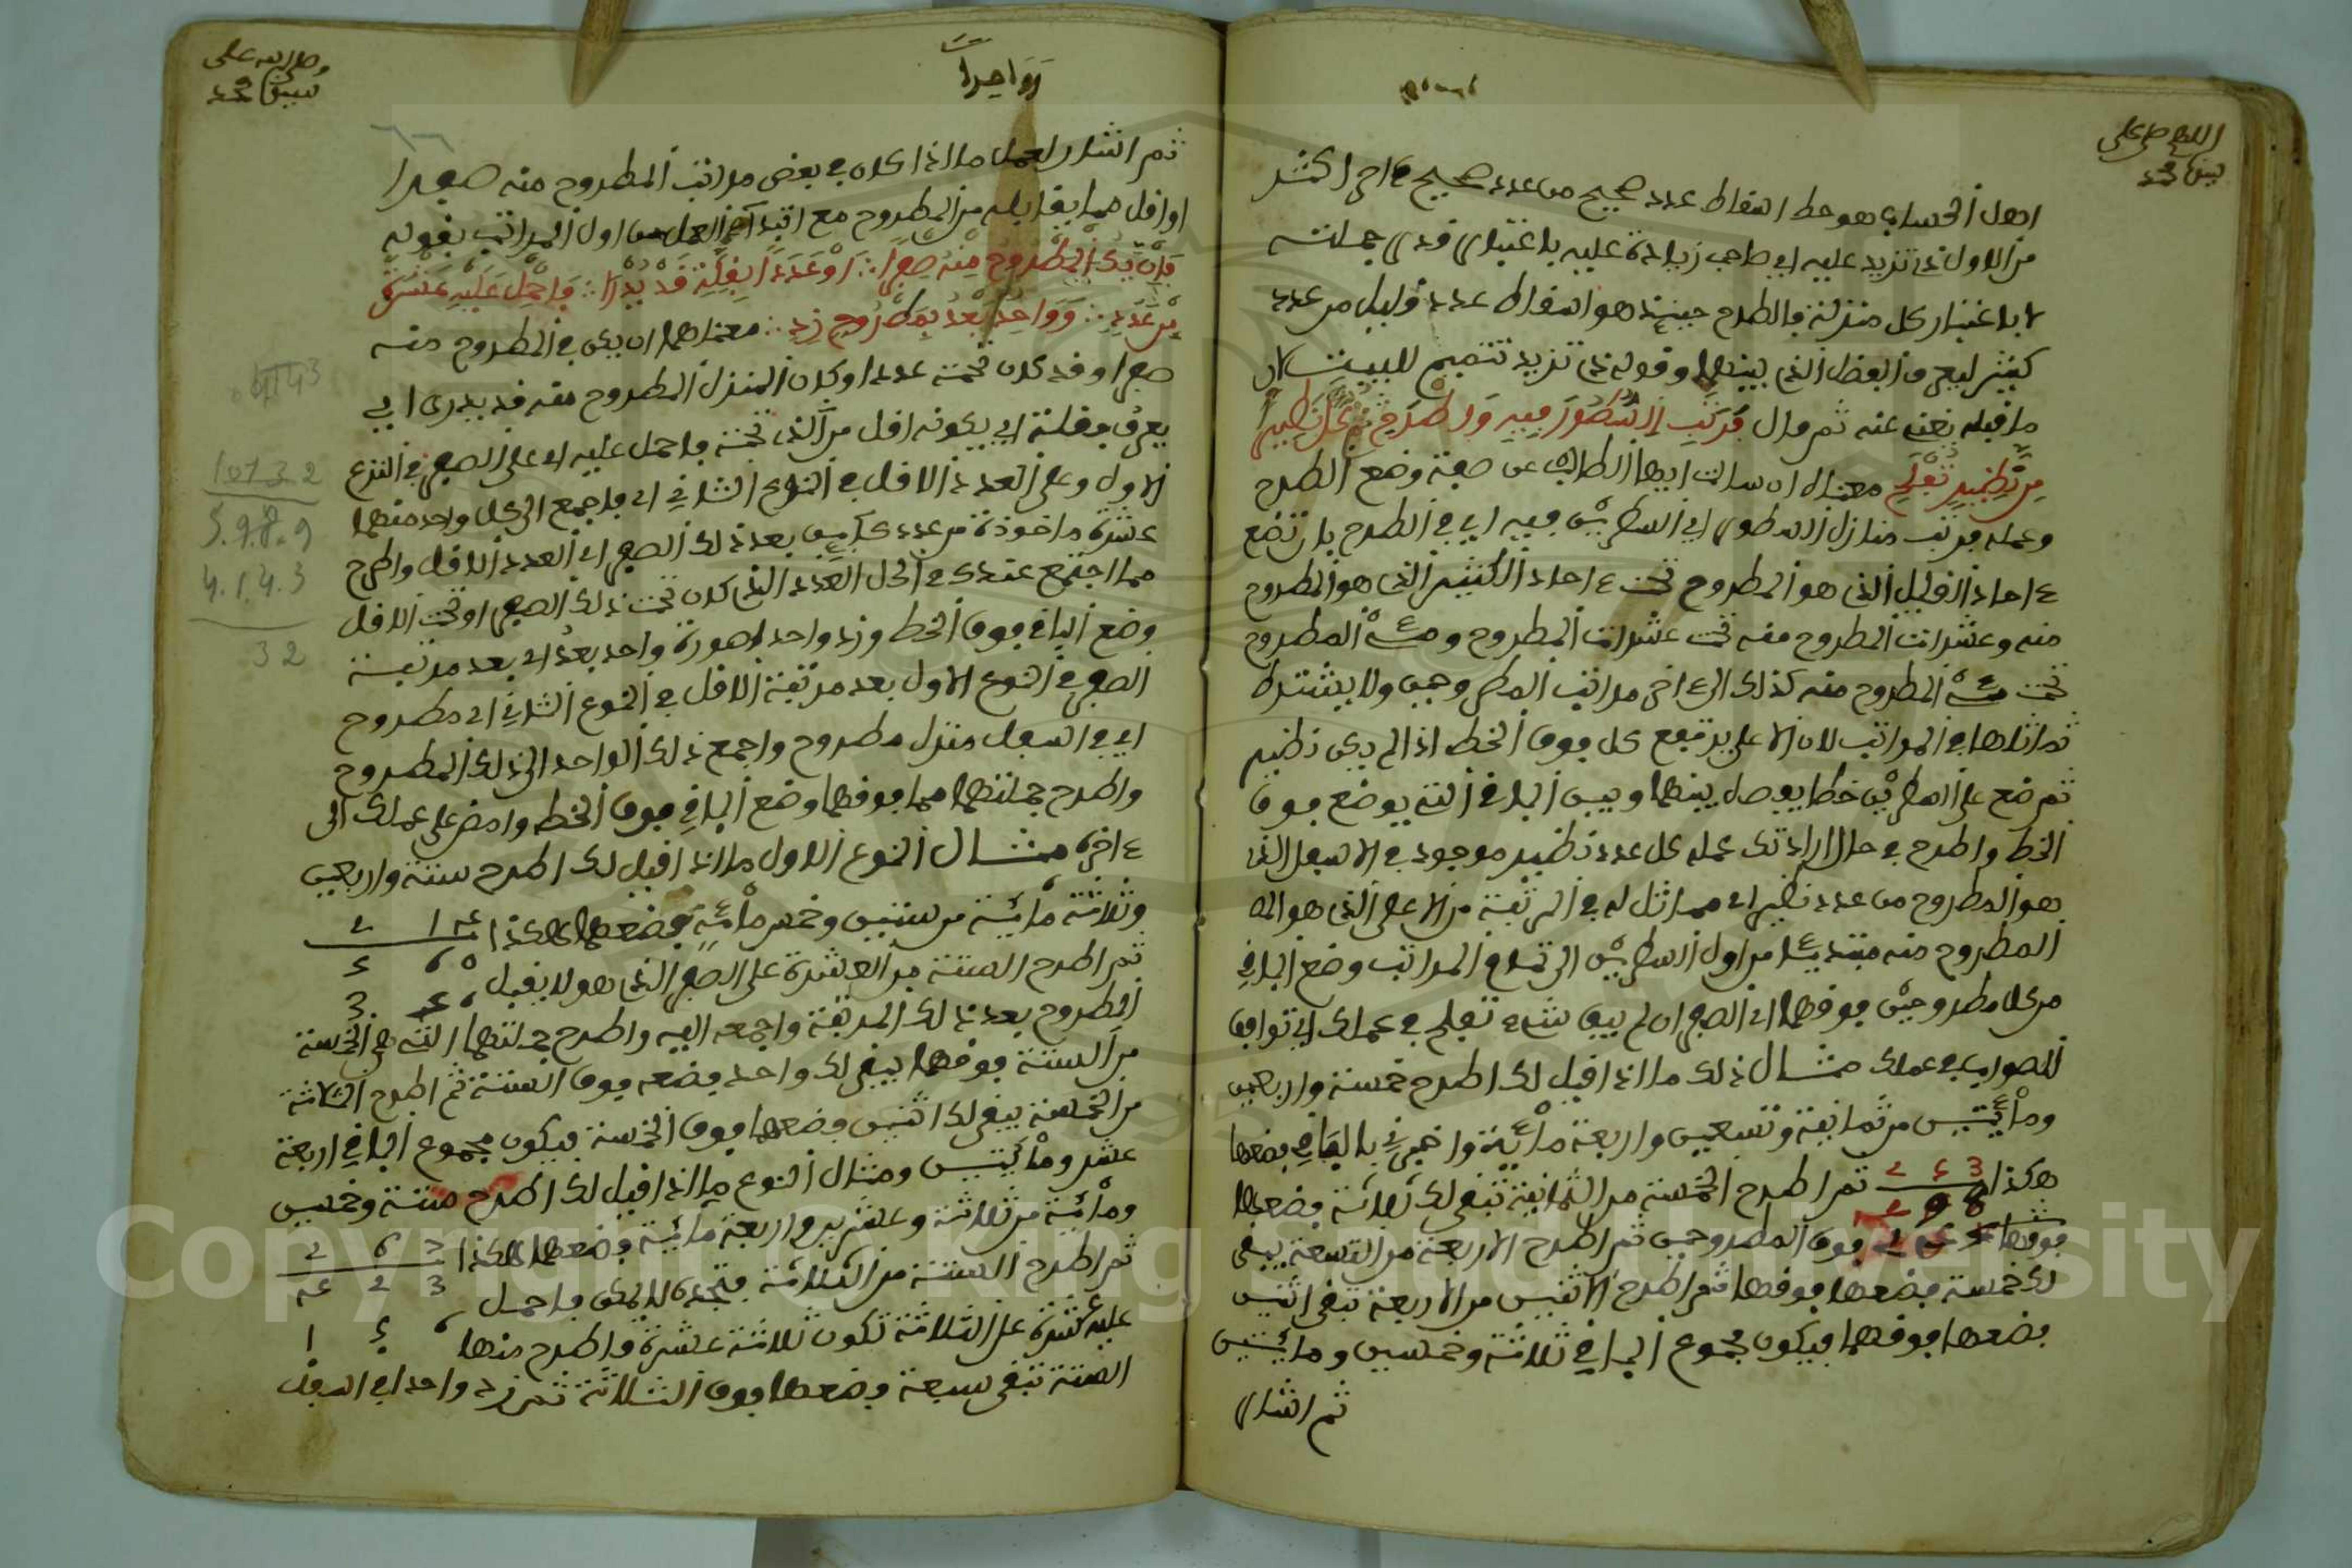 اللهم صل على
سيدنا محمد
اهل الحساب هو حط اسقاط عدد صحيح من عدد صحيح ءاخر اكثر
من الاول ذي تزيد عليه اي صاحب زيادة عليه باعتبار قدر جملته
لا باعتبار كل منزلة فالطرح حينئذ هو اسقاط عدد قليل من عدد
كثير ليعرف الفضل الذي بينهما وقوله ذي تزيد تتميم للبيت لان
ما قبله يغني عنه ثم قال فرتب السطور فيه واطرح كل نظير
من نظير تفلح معناه ان سالت ايها الطالب عن صفة وضع الطرح
وعمله فرتب منازل السطور اي السطرين فيه اي في الطرح بان تضع
ءاحاد القليل الذي هو المطروح تحت ءاحاد الكثير الذي هو المطروح
منه وعشرات المطروح منه تحت عشرات المطروح ومئة المطروح
تحت مئة المطروح منه كذلك الى ءاخر مراتب المطروحين ولا يشترط
تماثلها في المراتب لان الاعلى يرتفع كل فوق الخط اذا لم يكن نظير
ثم ضع على السطرين خطا يوصل بينهما وبين الباقي الذي يوضع فوق
الخط واطرح في حال ارادتك عمله كل عدد نظير موجود في الاسفل الذي
هو المطروح من عدد نظير اي مماثل له في المرتبة من الاعلى الذي هو الم
المطروح منه مبتدئا من اول السطرين الى تمام المراتب وضع الباقي
من كل مطروحين فوقهما اي الصفر ان لم يبق شيء تفلح في عملك اي توافق
الصواب في عملك مثال ذلك ما اذا قيل لك اطرح خمسة واربعين
ومائتين من ثمانية وتسعين واربعة مائة واخبرني بالباقي فضعها
هكذا 3 5 2 ثم اطرح الخمسة من الثمانية تبقى لك ثلاثة فضعها
فوقها فوق المطروحين ثم اطرح الاربعة من التسعة يبقى
لك خمسة فضعها فوقها ثم اطرح الاثنين من الاربعة تبقى اثنين
فضعها فوقهما فيكون مجموع الباقي ثلاثة وخمسين ومائتين
ثم اشار
وصلى الله على
سيدنا محمد
وواحدا
ثم اشار لعمل ما اذا كان في بعض مراتب المطروح منه صفرا
او اقل مما يقابله من المطروح مع ابتداء العمل من اول المراتب بقوله
فان يك المطروح منه صفرا ∴ او عددا بقلة قد يدرا ∴ فاحمل عليه عشرة
من عدد ∴ وواحد بعد بمطروح زد ∴ معناهما ان يكن في المطروح منه
صفرا وقد كان تحته عددا وكان المنزل المطروح منه قد يدرى اي
يعرف بقلة اي بكونه اقل من الذي تحته فاحمل عليه اي على الصفر في النوع
الاول وعلى العدد الاقل في النوع الثاني اي فاجمع الى كل واحد منهما
عشرة ماخوذة من عدد كائن بعد ذلك الصفر اي العدد الاقل واطرح
مما اجتمع عندك في الحل العدد الذي كان تحت ذلك الصفر او تحت الاقل
وضع الباقي فوق الخط وزد واحد لصورة واحد بعد اي بعد مرتبة
الصفر في النوع الاول بعد مرتبة الاقل في النوع الثاني اي مطروح
اي في اسفل منزل مطروح واجمع ذلك الواحد الى ذلك المطروح
واطرح جملتهما مما فوقهما وضع الباقي فوق الخط وامض على عملك الى
ءاخره مثال النوع الاول ما اذا قيل لك اطرح ستة واربعين
وثلاثة مائة من ستين وخمس مائة فضعهما هكذا 2 1 4
ثم اطرح الستة من العشرة على الصفر الذي هو لا يقبل
المطروح بعد ذلك المرتبة واجمعه اليه واطرح جملتهما التي هي الخمسة
من الستة فوقها يبقى لك واحد فضعه فوق الستة ثم اطرح الثلاثة
من الخمسة يبقى لك اثنين فضعهما فوق الخمسة فيكون مجموع الباقي اربعة
عشر ومائتين ومثال النوع ما اذا قيل لك اطرح ستة وخمسين
ومائة من ثلاثة وعشرين واربعة مائة فضعهما هكذا 2 6 7
ثم اطرح الستة من الثلاثة فتجده لا يمكن فاحمل 4 2 3
عليه عشرة على الثلاثة تكون ثلاثة عشرة فاطرح منها 1 5 6
الستة تبقى سبعة فضعها فوق الثلاثة ثم زد واحد اي اسفل
4143
10132
5.9.8.9
4.1.4.3
32
Copyright © King Saud University